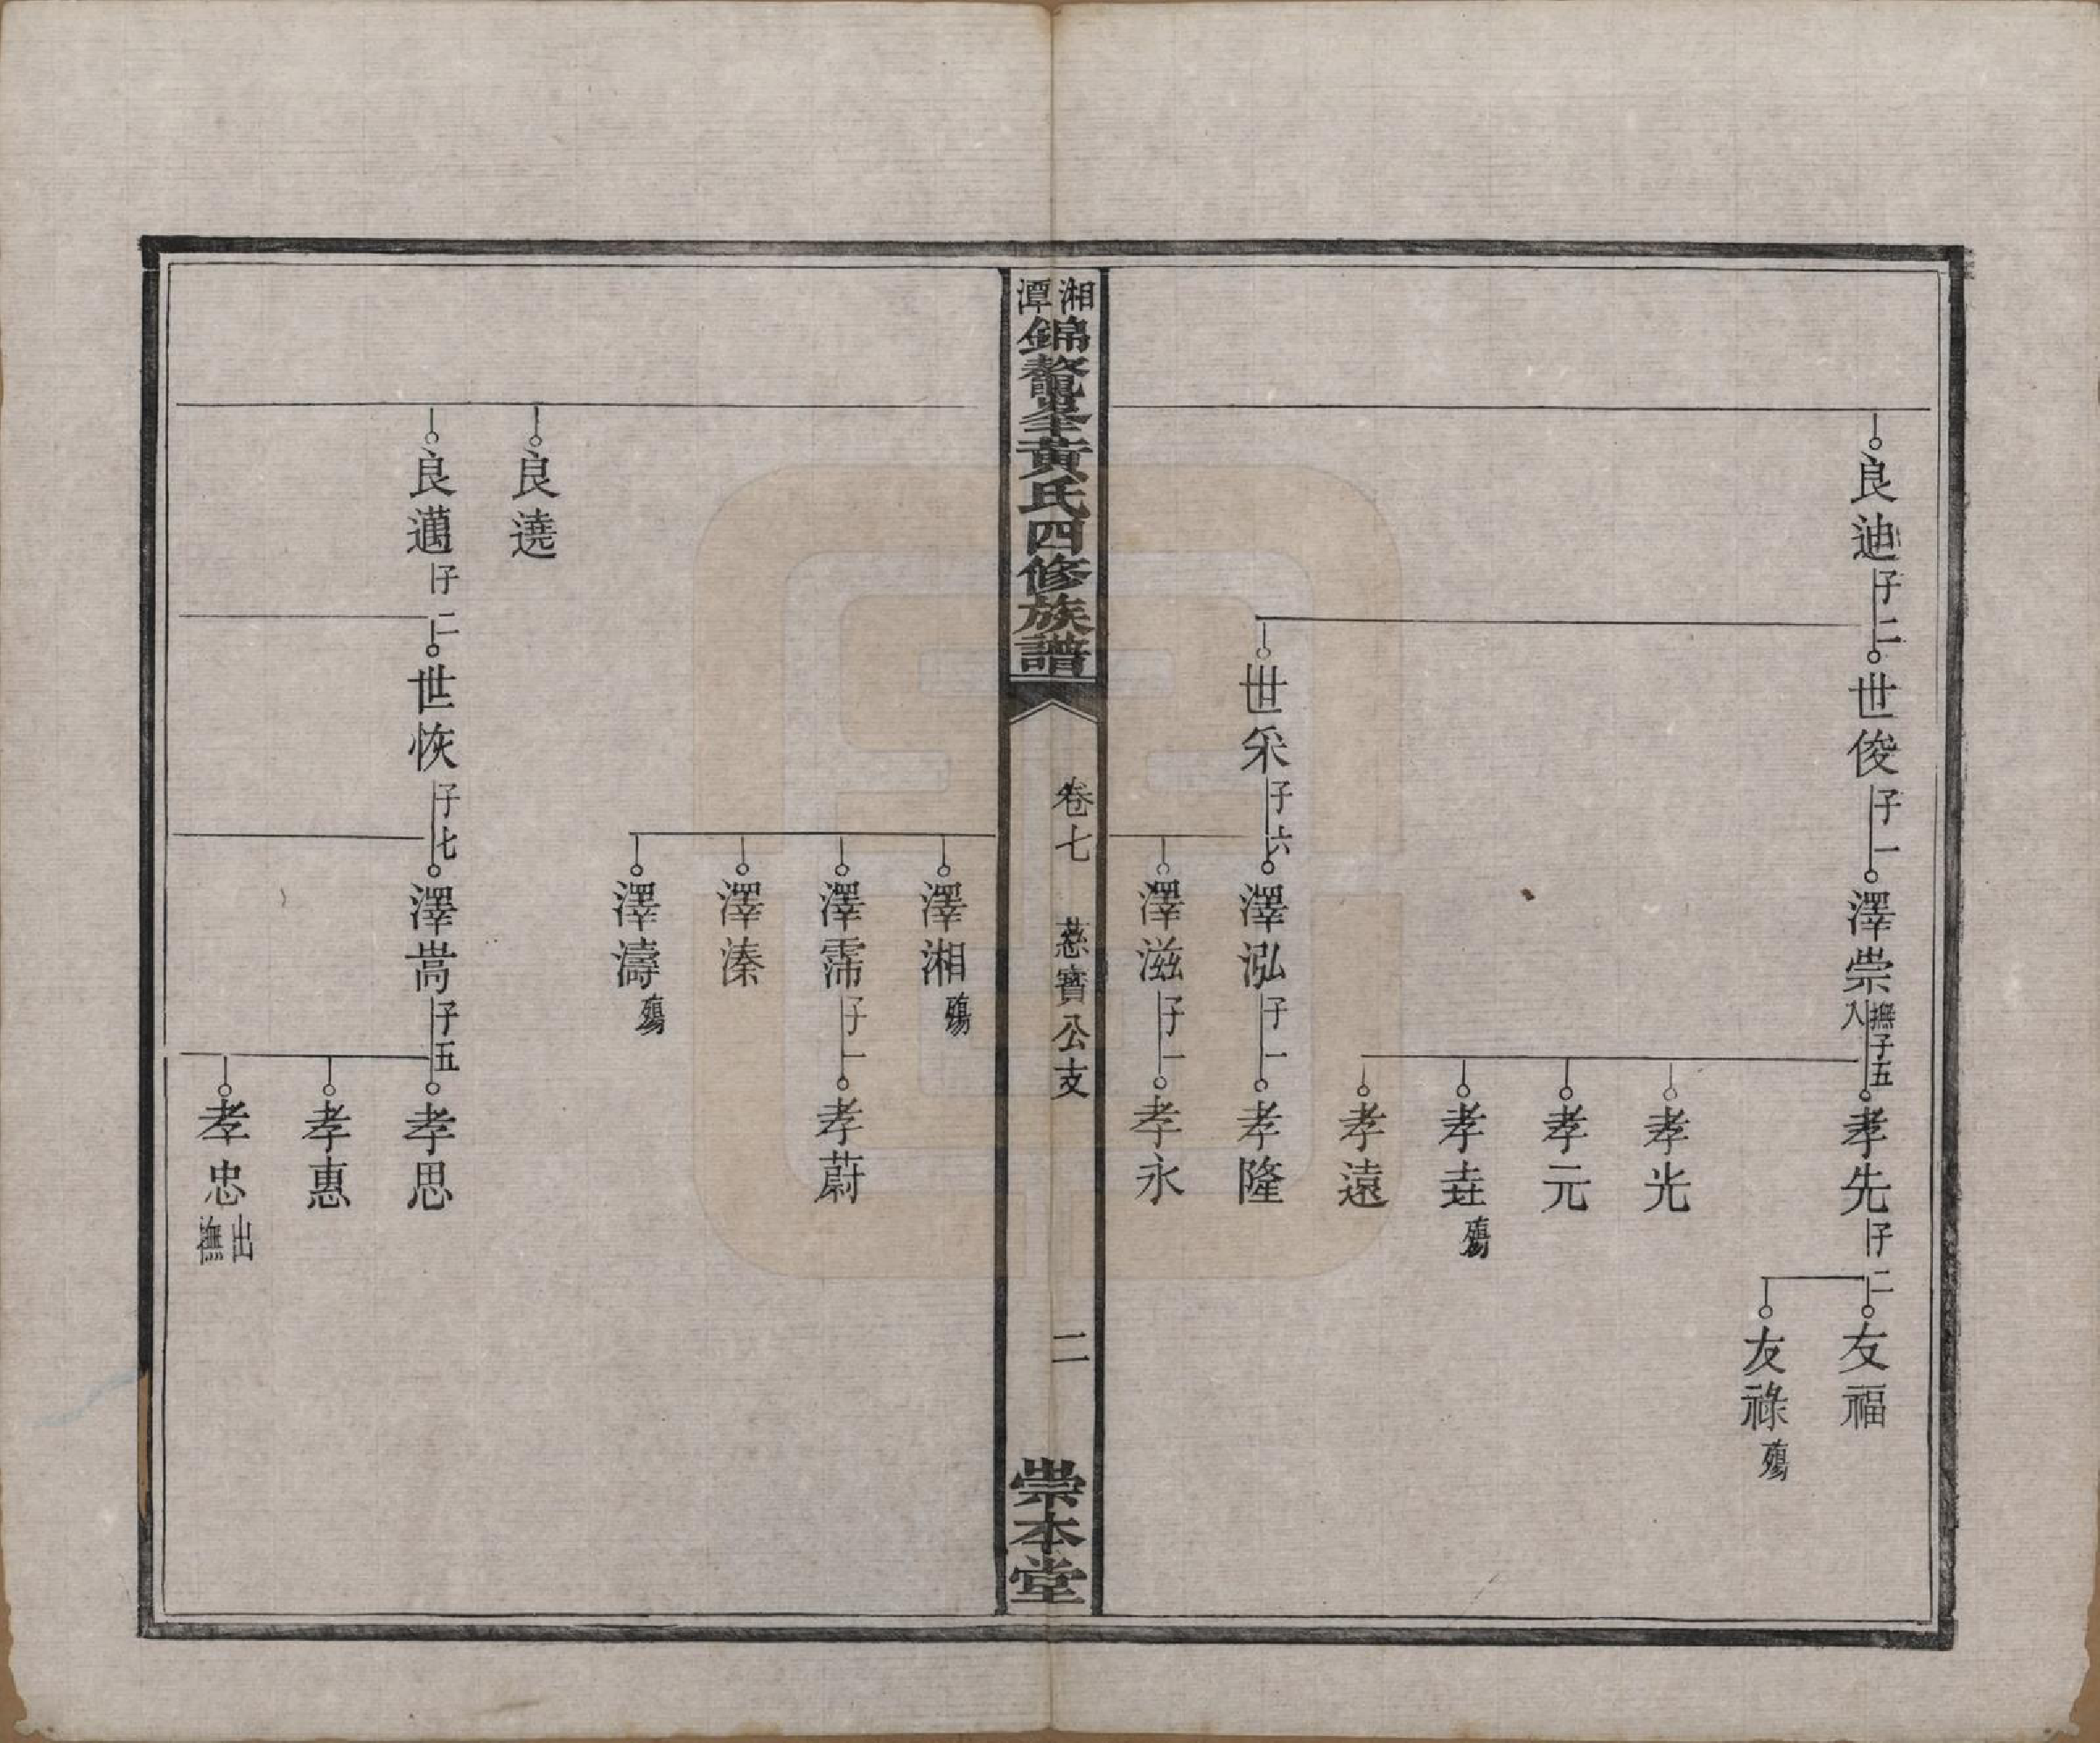 良迪 子二
世俊 子一
澤崇 入撫子五
孝先 子二
友福
友祿 殤
孝光
孝元
孝㚅 殤
孝遠
世采 子六
澤泓 子一
孝隆
澤滋 子一
孝永
湘潭錦鼇峯黃氏四修族譜
卷七 慈寶公支
二
崇本堂
澤湘 殤
澤霈 子一
孝蔚
澤溱
澤濤 殤
良遶
良邁 子二
世恢 子七
澤嵩 子五
孝思
孝惠
孝忠 出撫